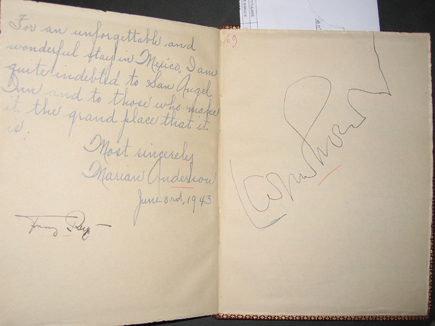 For an unforgettable and
wonderful stay in Mexico, I am
quite indebted to San Angel
Inn and to those who make
it the grand place that it
is.
Most sincerely
Marian Anderson
June 2nd, 1943